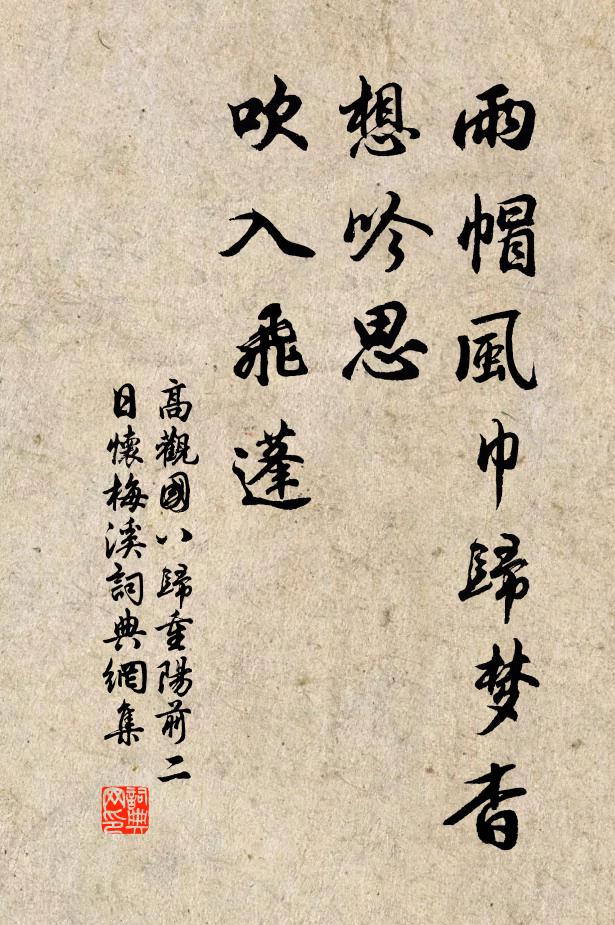 雨帽風巾歸梦杳
想吟思
吹入飛蓬
高觀國八歸重陽前二
日懷梅溪詞典網集
詞典
网印